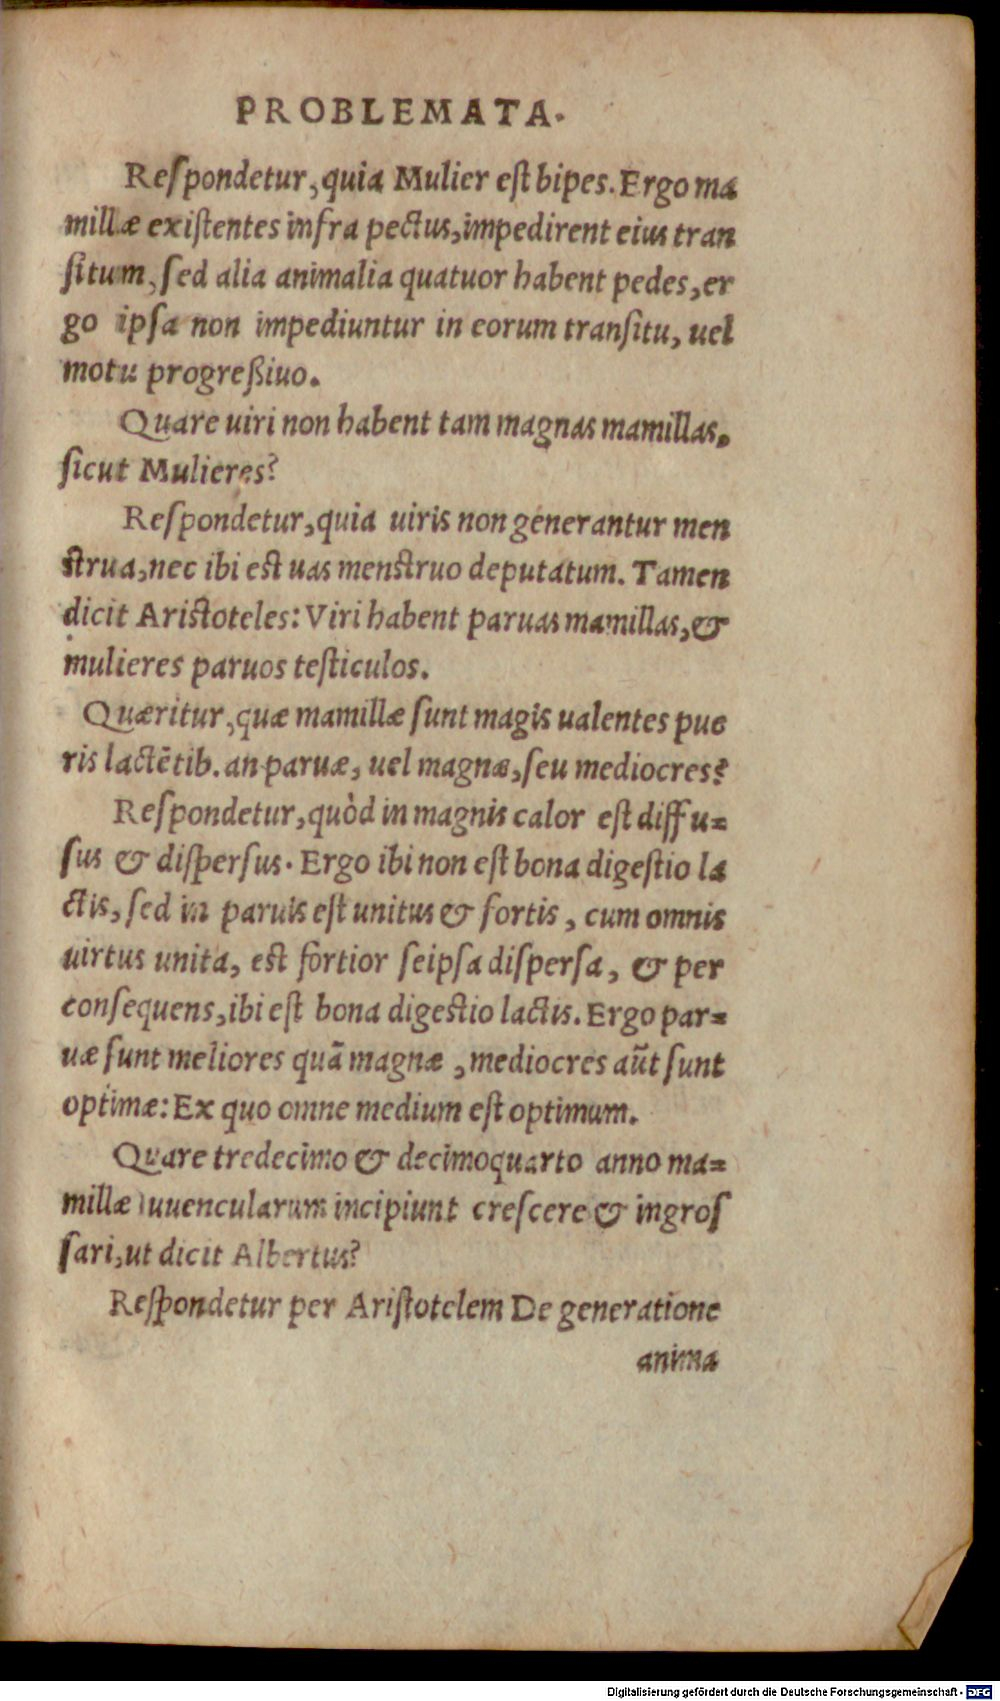 PROBLEMATA.
Reſpondetur, quia Mulier eſt bipes. Ergo ma
millæ exiſtentes infra pectus, impedirent eius tran
ſitum, ſed alia animalia quatuor habent pedes, er
go ipſa non impediuntur in eorum tranſitu, uel
motu progreßiuo.
Quare uiri non habent tam magnas mamillas,
ſicut Mulieres?
Reſpondetur, quia uiris non generantur men
ſtrua, nec ibi eſt uas menſtruo deputatum. Tamen
dicit Ariſtoteles: Viri habent paruas mamillas, &
mulieres paruos teſticulos.
Quæritur, quæ mamillæ ſunt magis ualentes pue
ris lactētib. an paruæ, uel magnæ, ſeu mediocres?
Reſpondetur, quòd in magnis calor eſt diffu=
ſus & diſperſus. Ergo ibi non eſt bona digeſtio la
ctis, ſed in paruis eſt unitus & fortis, cum omnis
uirtus unita, eſt fortior ſeipſa diſperſa, & per
conſequens, ibi eſt bona digeſtio lactis. Ergo par=
uæ ſunt meliores quā magnæ, mediocres aūt ſunt
optimæ: Ex quo omne medium eſt optimum.
Quare tredecimo & decimoquarto anno ma=
millæ iuuencularum incipiunt creſcere & ingroſ
ſari, ut dicit Albertus?
Reſpondetur per Ariſtotelem De generatione
anima
Digitalisierung gefördert durch die Deutsche Forschungsgemeinschaft - DFG